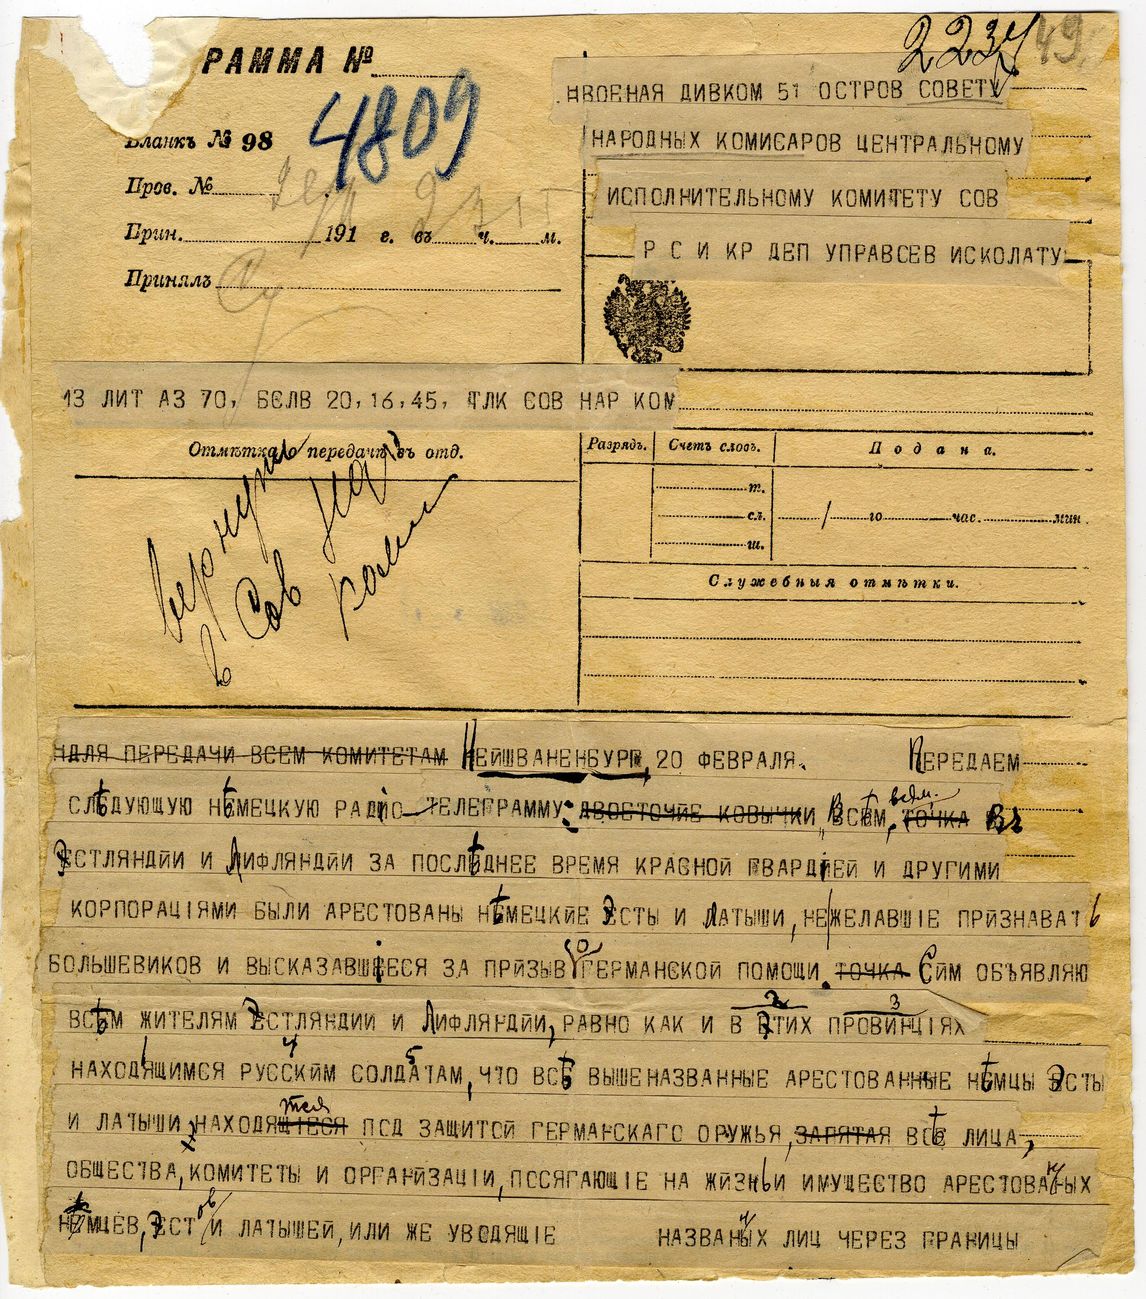 2234 49
РАММА №
4809
НВОЕНАЯ ДИВКОМ 51 ОСТРОВ СОВЕТУ
Бланкъ № 98
НАРОДНЫХ КОМИСАРОВ ЦЕНТРАЛЬНОМУ
Пров. №
ИСПОЛНИТЕЛЬНОМУ КОМИТЕТУ СОВ
Прин. 191 г. въ ч. м.
Р С И КР ДЕП УПРАВСЕВ ИСКОЛАТУ
Принялъ
ИЗ ЛИТ АЗ 70, БЄЛВ 20,16,45, ТЛК СОВ НАР КОМ
Отмѣтка передачи въ отд.
Разрядъ. Счетъ словъ. Подана.
т.
сл. / го час. мин.
ш.
Служебныя отмѣтки.
Вернуть
в Сов Нар
комы
НДЛЯ ПЕРЕДАЧИ ВСЕМ КОМИТЕТАМ НЕЙШВАНЕНБУРГ, 20 ФЕВРАЛЯ. ПЕРЕДАЕМ
СЛѢДУЮЩУЮ НѢМЕЦКУЮ РАДІО-ТЕЛЕГРАММУ: ДВОЕТОЧИЕ КОВЫЧКИ „ВСѢМ, всѣм. ТОЧКА Въ
ЭСТЛЯНДИИ И ЛИФЛЯНДИИ ЗА ПОСЛѢДНЕЕ ВРЕМЯ КРАСНОЙ ГВАРДІЕЙ И ДРУГИМИ
КОРПОРАЦІЯМИ БЫЛИ АРЕСТОВАНЫ НѢМЕЦКИЕ ЭСТЫ И ЛАТЫШИ, НЕ/ЖЕЛАВШІЕ ПРИЗНАВАТЬ
БОЛЬШЕВИКОВ И ВЫСКАЗАВШІЕСЯ ЗА ПРИЗЫВ ГЕРМАНСКОЙ ПОМОЩИ. ТОЧКА СИМ ОБЪЯВЛЯЮ
ВСѢМ ЖИТЕЛЯМ ЭСТЛЯНДИИ И ЛИФЛЯНДИИ, РАВНО КАК И В 2 ЭТИХ 3 ПРОВИНЦІЯХ
1 НАХОДЯЩИМСЯ 4 РУССКИМ 5 СОЛДАТАМ, ЧТО ВСѢ ВЫШЕНАЗВАННЫЕ АРЕСТОВАННЫЕ НѢМЦЫ ЭСТЫ
И ЛАТЫШИ НАХОДЯЩІЕСЯ тся ПОД ЗАЩИТОЙ ГЕРМАНСКАГО ОРУЖЬЯ, ЗАПЯТАЯ ВСѢ ЛИЦА,
ОБЩЕСТВА, КОМИТЕТЫ И ОРГАНИЗАЦІИ, ПОСЯГАЮЩІЕ НА ЖИЗНЬ И ИМУЩЕСТВО АРЕСТОВАННЫХ
НѢМЦЕВ, ЭСТОВ И ЛАТЫШЕЙ, ИЛИ ЖЕ УВОДЯЩІЕ НАЗВАННЫХ ЛИЦ ЧЕРЕЗ ГРАНИЦЫ